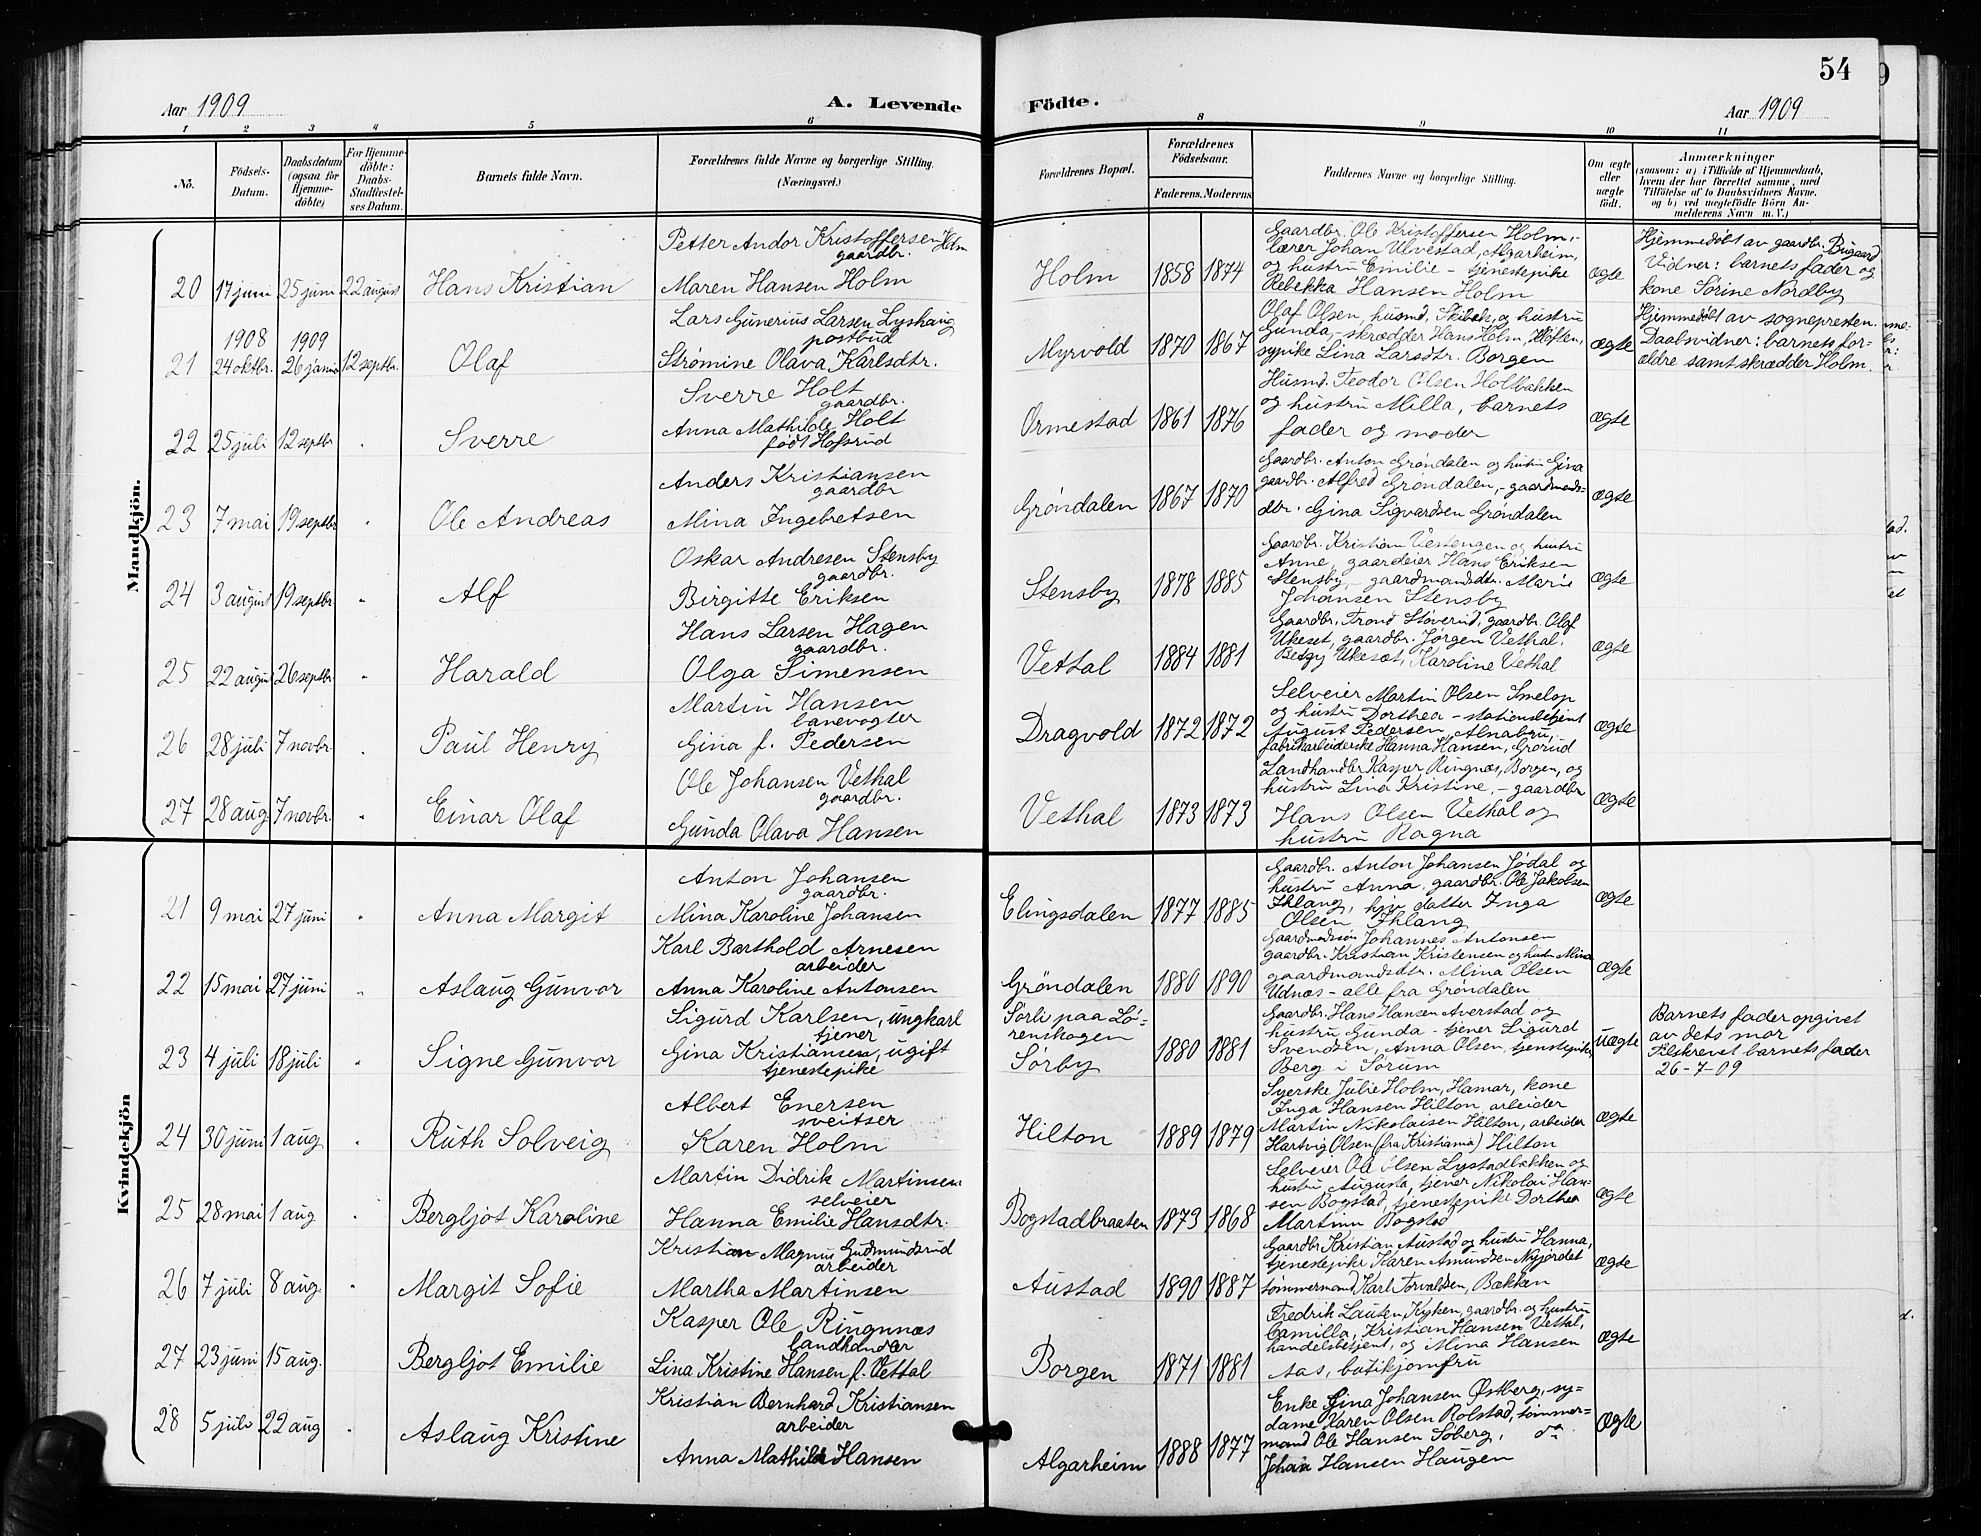 54
Aar 1909
A. Levende
Födte.
Aar 1909
1 2 3 4 5 6 8 9 10 11
No.
Födsels-
Datum.
Daabsdatum
(ogsaa for
Hjemme-
döbte)
For Hjemme-
döbte:
Daabs-
Stadfæstel-
ses Datum.
Barnets fulde Navn.
Forældrenes fulde Navne og borgerlige Stilling.
(Næringsvei.)
Forældrenes Bopæl.
Forældrenes
Födselsaar.
Faderens. Moderens
Faddernes Navne og borgerlige Stilling.
Om ægte
eller
uægte
födt.
Anmærkninger
(saasom: a) i Tilfælde af Hjemmedaab,
hvem der har forrettet samme, med
Tilföielse af to Daabsvidners Navne,
og b) ved uægtefödte Börn An-
melderens Navn m. V.)
Mandkjön.
20 17 juni 25 juni 22 august Hans Kristian
Petter Andor Kristoffersen Holm
gaardbr.
Maren Hansen Holm
Holm 1858 1874
Gaardbr. Ole Kristoffersen Holm,-
lærer Johan Ulvestad, Algarheim,
og hustru Emilie - tjenestepike
Rebekka Hansen Holm
ægte
Hjemmedøbt av gaardbr. Bugaard
Vidner: barnets fader og
kone Sørine Nordby
1908 1909
21 24 oktbr. 26 janu 12 septbr. Olaf
Lars Gunerius Larsen Lyshaug
postbud
Strømine Olava Karlsdtr.
Myrvold 1870 1867
Olaf Olsen, husmd. Skibak, og hustru
Gunda,- skrædder Hans Holm, Kløften,
sypike Lina Larsdtr. Borgen
ægte
Hjemmedøbt av sognepresten.
Daabsvidner: barnets for-
ældre samt skrædder Holm.
22 25 juli 12 septbr . Sverre
Sverre Holt
gaardbr.
Anna Mathilde Holt
født Hofsrud
Ormestad 1861 1876
Husmd. Teodor Olsen Holtbakken
og hustru Milla, barnets
fader og moder
ægte
23 7 mai 19 septbr . Ole Andreas
Anders Kristiansen
gaardbr
Mina Ingebretsen
Grøndalen 1867 1870
Gaardbr. Anton Grøndalen og hustru Gina
gaardbr. Alfred Grøndalen,- gaardmands-
dtr. Gina Sigvardsen Grøndalen
ægte
24 3 august 19 septbr . Alf
Oskar Andresen Stensby
gaardbr.
Birgitte Eriksen
Stensby 1878 1885
Gaardbr. Kristian Vestengen og hustru
Anne, gaardeier Hans Eriksen
Stensby,- gaardmandsdtr. Marie
Johansen Stensby
ægte
25 22 august 26 septbr . Harald
Hans Larsen Hagen
gaardbr.
Olga Simensen
Vethal 1884 1881
Gaardbr. Trond Støverud, gaardbr. Olaf
Ukeset, gaardbr. Jørgen Vethal.
Betzy Ukesæt, Karoline Vethal
ægte
26 28 juli 7 novbr. . Paul Henry
Martin Hansen
banevogter
Gina f. Pedersen
Dragvold 1872 1872
Selveier Martin Olsen Smelop
og hustru Dorthea - stationsbetjent
August Pedersen, Alnabru,
fabrikarbeiderske Hanna Hansen, Grorud
ægte
27 28 aug 7 novbr. . Einar Olaf
Ole Johansen Vethal
gaardbr.
Gunda Olava Hansen
Vethal 1873 1873
Landhandbr Kasper Ringnæs, Borgen, og
hustru Lina Kristine, - gaardbr
Hans Olsen Vethal og
hustru Ragna
ægte
Kvindekjön
21 9 mai 27 juni . Anna Margit
Anton Johansen
gaardbr.
Mina Karoline Johansen
Elingsdalen 1877 1885
Gaardbr. Anton Johansen Jødal og
hustru Anna, gaardbr. Ole Jakobsen
Ihlang, hjv. datter Inga
Olsen Ihlang
ægte
22 15 mai 27 juni . Aslaug Gunvor
Karl Barthold Arnesen
arbeider
Anna Karoline Antonsen
Grøndalen 1880 1890
Gaardmandssøn Johannes Antonsen
gaardbr. Kristian Kristensen og hustru Mina
gaardmandsdtr. Mina Olsen
Udnæs - alle fra Grøndalen
ægte
23 4 juli 18 juli . Signe Gunvor
Sigurd Karlsen, ungkarl
tjener
Gina Kristiansen, ugift
tjenestepike
Sørli paa Lø-
renskogen
Sørby
1880 1881
Gaardbr. Hans Hansen Averstad og
hustru Gunda - tjener Sigurd
Svendsen, Anna Olsen, tjenstepike,
Berg i Sørum
uægte
Barnets fader opgivet
av dets mor
Tilskrevet barnets fader
26-7-09
24 30 juni 1 aug . Ruth Solveig
Albert Enersen
sveitser
Karen Holm
Hilton 1889 1879
Syerske Julie Holm, Hamar, kone
Inga Hansen Hilton, arbeider
Martin Nikolaisen Hilton, arbeider
Hartvig Olsen (fra Kristiania) Hilton
ægte
25 28 mai 1 aug . Bergljot Karoline
Martin Didrik Martinsen
selveier
Hanna Emilie Hansdtr.
Bogstadbraaten 1873 1868
Selveier Ole Olsen Lystadbakken og
hustru Augusta, tjener Nikolai Han-
sen Bogstad, tjenestepike Dorthea
Martinu Bogstad
ægte
26 7 juli 8 aug . Margit Sofie
Kristian Magnus Gudmundsrud
arbeider
Martha Martinsen
Austad 1890 1887
Gaardbr Kristian Austad og hustru Hanna,
tjenestepike Karen Amundsen Nyjordet
tømmermand Karl Torvaldsen, Bakken
ægte
27 23 juni 15 aug. Bergljot Emilie
Kasper Ole Ringnnæs
landhandler
Lina Kristine Hansen f. Vettal
Borgen 1871 1881
Fredrik Lauten, Kyken, gaardbr. og hustru
Camilla, Kristian Hansen Vettal,
handelsbetjent, og Mina Hansen
Aas, butikjomfru
ægte
28 5 juli 22 aug . Aslaug Kristine
Kristian Bernhard Kristiansen
arbeider
Anna Mathilde Hansen
Algarheim 1888 1877
Enke Gina Johansen Østberg, sy-
dame Karen Olsen Rolstad, tømmer-
mand Ole Hansen Soberg, do
Johan Hansen Haugen
ægte